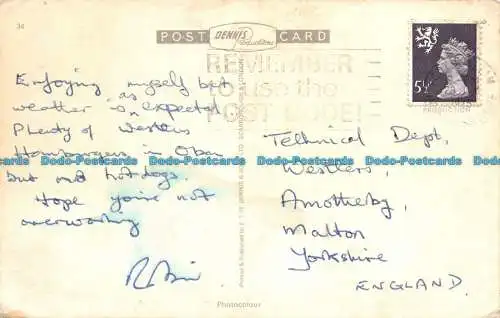 34
POST CARD
DENNIS
Productions
REMEMBER
to use the
POST CODE!
5½P
Enjoying myself but
as
weather is expected
Plenty of Westlers
Hamburgers in Oban
but not hotdogs.
Hope you're not
overworking
Technical Dept,
Westlers,
Amotherby,
Malton
Yorkshire
ENGLAND.
Photocolour
Dodo-Postcards Dodo-Postcards Dodo-Postcards Dodo-Postcards